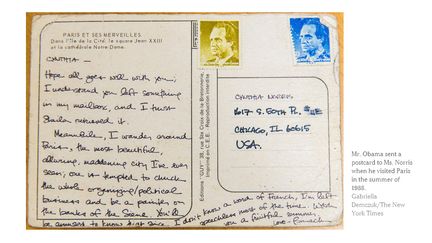 PARIS ET SES MERVEILLES
Dans l'Ile de la Cité, le square Jean XXIII
et la cathédrale Notre-Dame.
CYNTHIA —
Hope all goes well with you;
I understand you left something
in my mailbox, and I trust
retrieved it.
Meanwhile, I wander around
Paris, the most beautiful,
alluring, maddening city I've ever
seen; one is tempted to chuck
the whole organizing/political
business and be a painter on
the banks of the Seine. You'll
be amused to know that since I don't know a word of French, I'm left
speechless most of the time. Wish
you a fruitful summer,
Love - Barack
Editions "GUY" 38, rue Ste Croix de la Bretonnerie,
Imprimé en C.E.E. - Reproduction Interdite
CYNTHIA NORRIS
CHICAGO, IL 60615
USA.
Mr. Obama sent a
postcard to Ms. Norris
when he visited Paris
in the summer of
1988.
Gabriella
Demczuk/The New
York Times